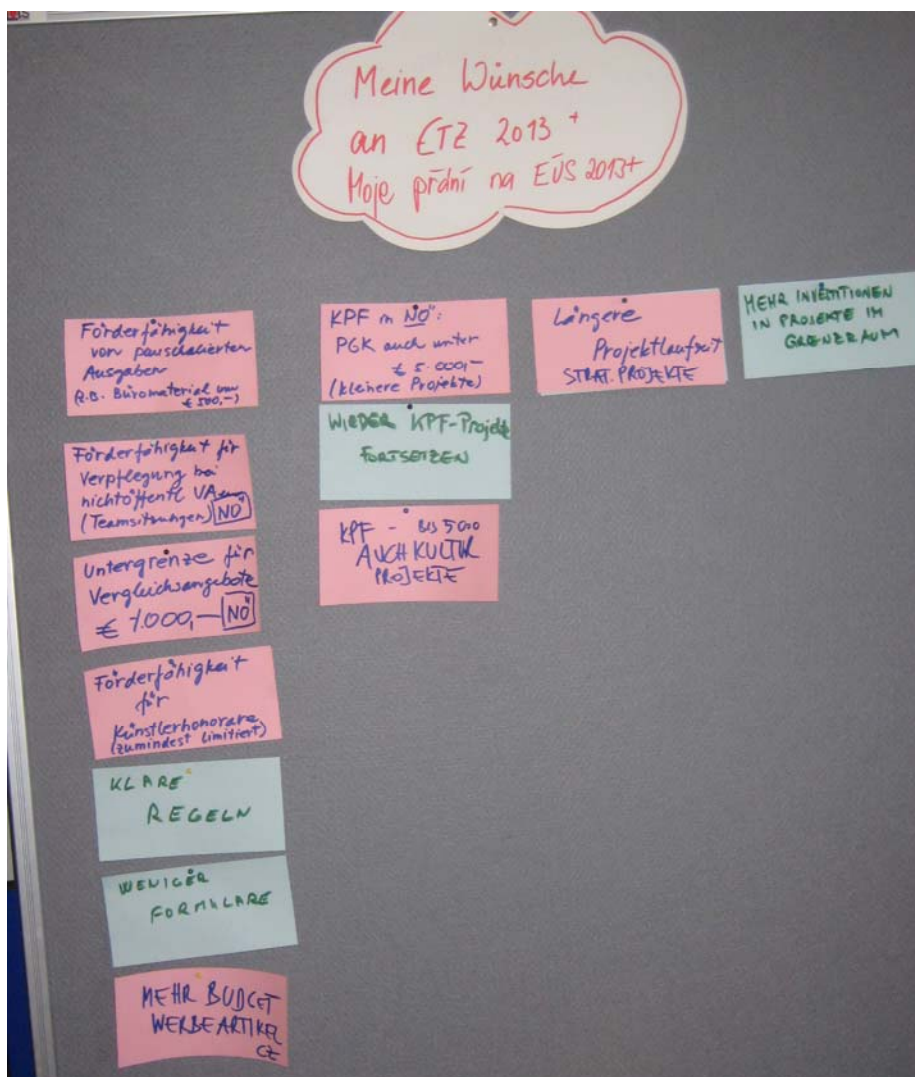 Meine Wünsche
an ETZ 2013+
Moje přání na EÚS 2013+
Förderfähigkeit
von pauschalierten
Ausgaben
(z.B. Büromaterial von
€ 500,-)
Förderfähigkeit für
Verpflegung bei
nichtöffentl VA
(Teamsitzungen) NÖ
Untergrenze für
Vergleichsangebote
€ 1.000,— NÖ
Förderfähigkeit
für
Künstlerhonorare
(zumindest limitiert)
KLARE
REGELN
WENIGER
FORMULARE
MEHR BUDGET
WERBEARTIKEL
CZ
KPF in NÖ:
PGK auch unter
€ 5.000,-
(kleinere Projekte)
WIEDER KPF-Projekte
FORTSETZEN
KPF - BIS 5000
AUCH KULTUR
PROJEKTE
Längere
Projektlaufzeit
STRAT. PROJEKTE
MEHR INVESTITIONEN
IN PROJEKTE IM
GRENZRAUM